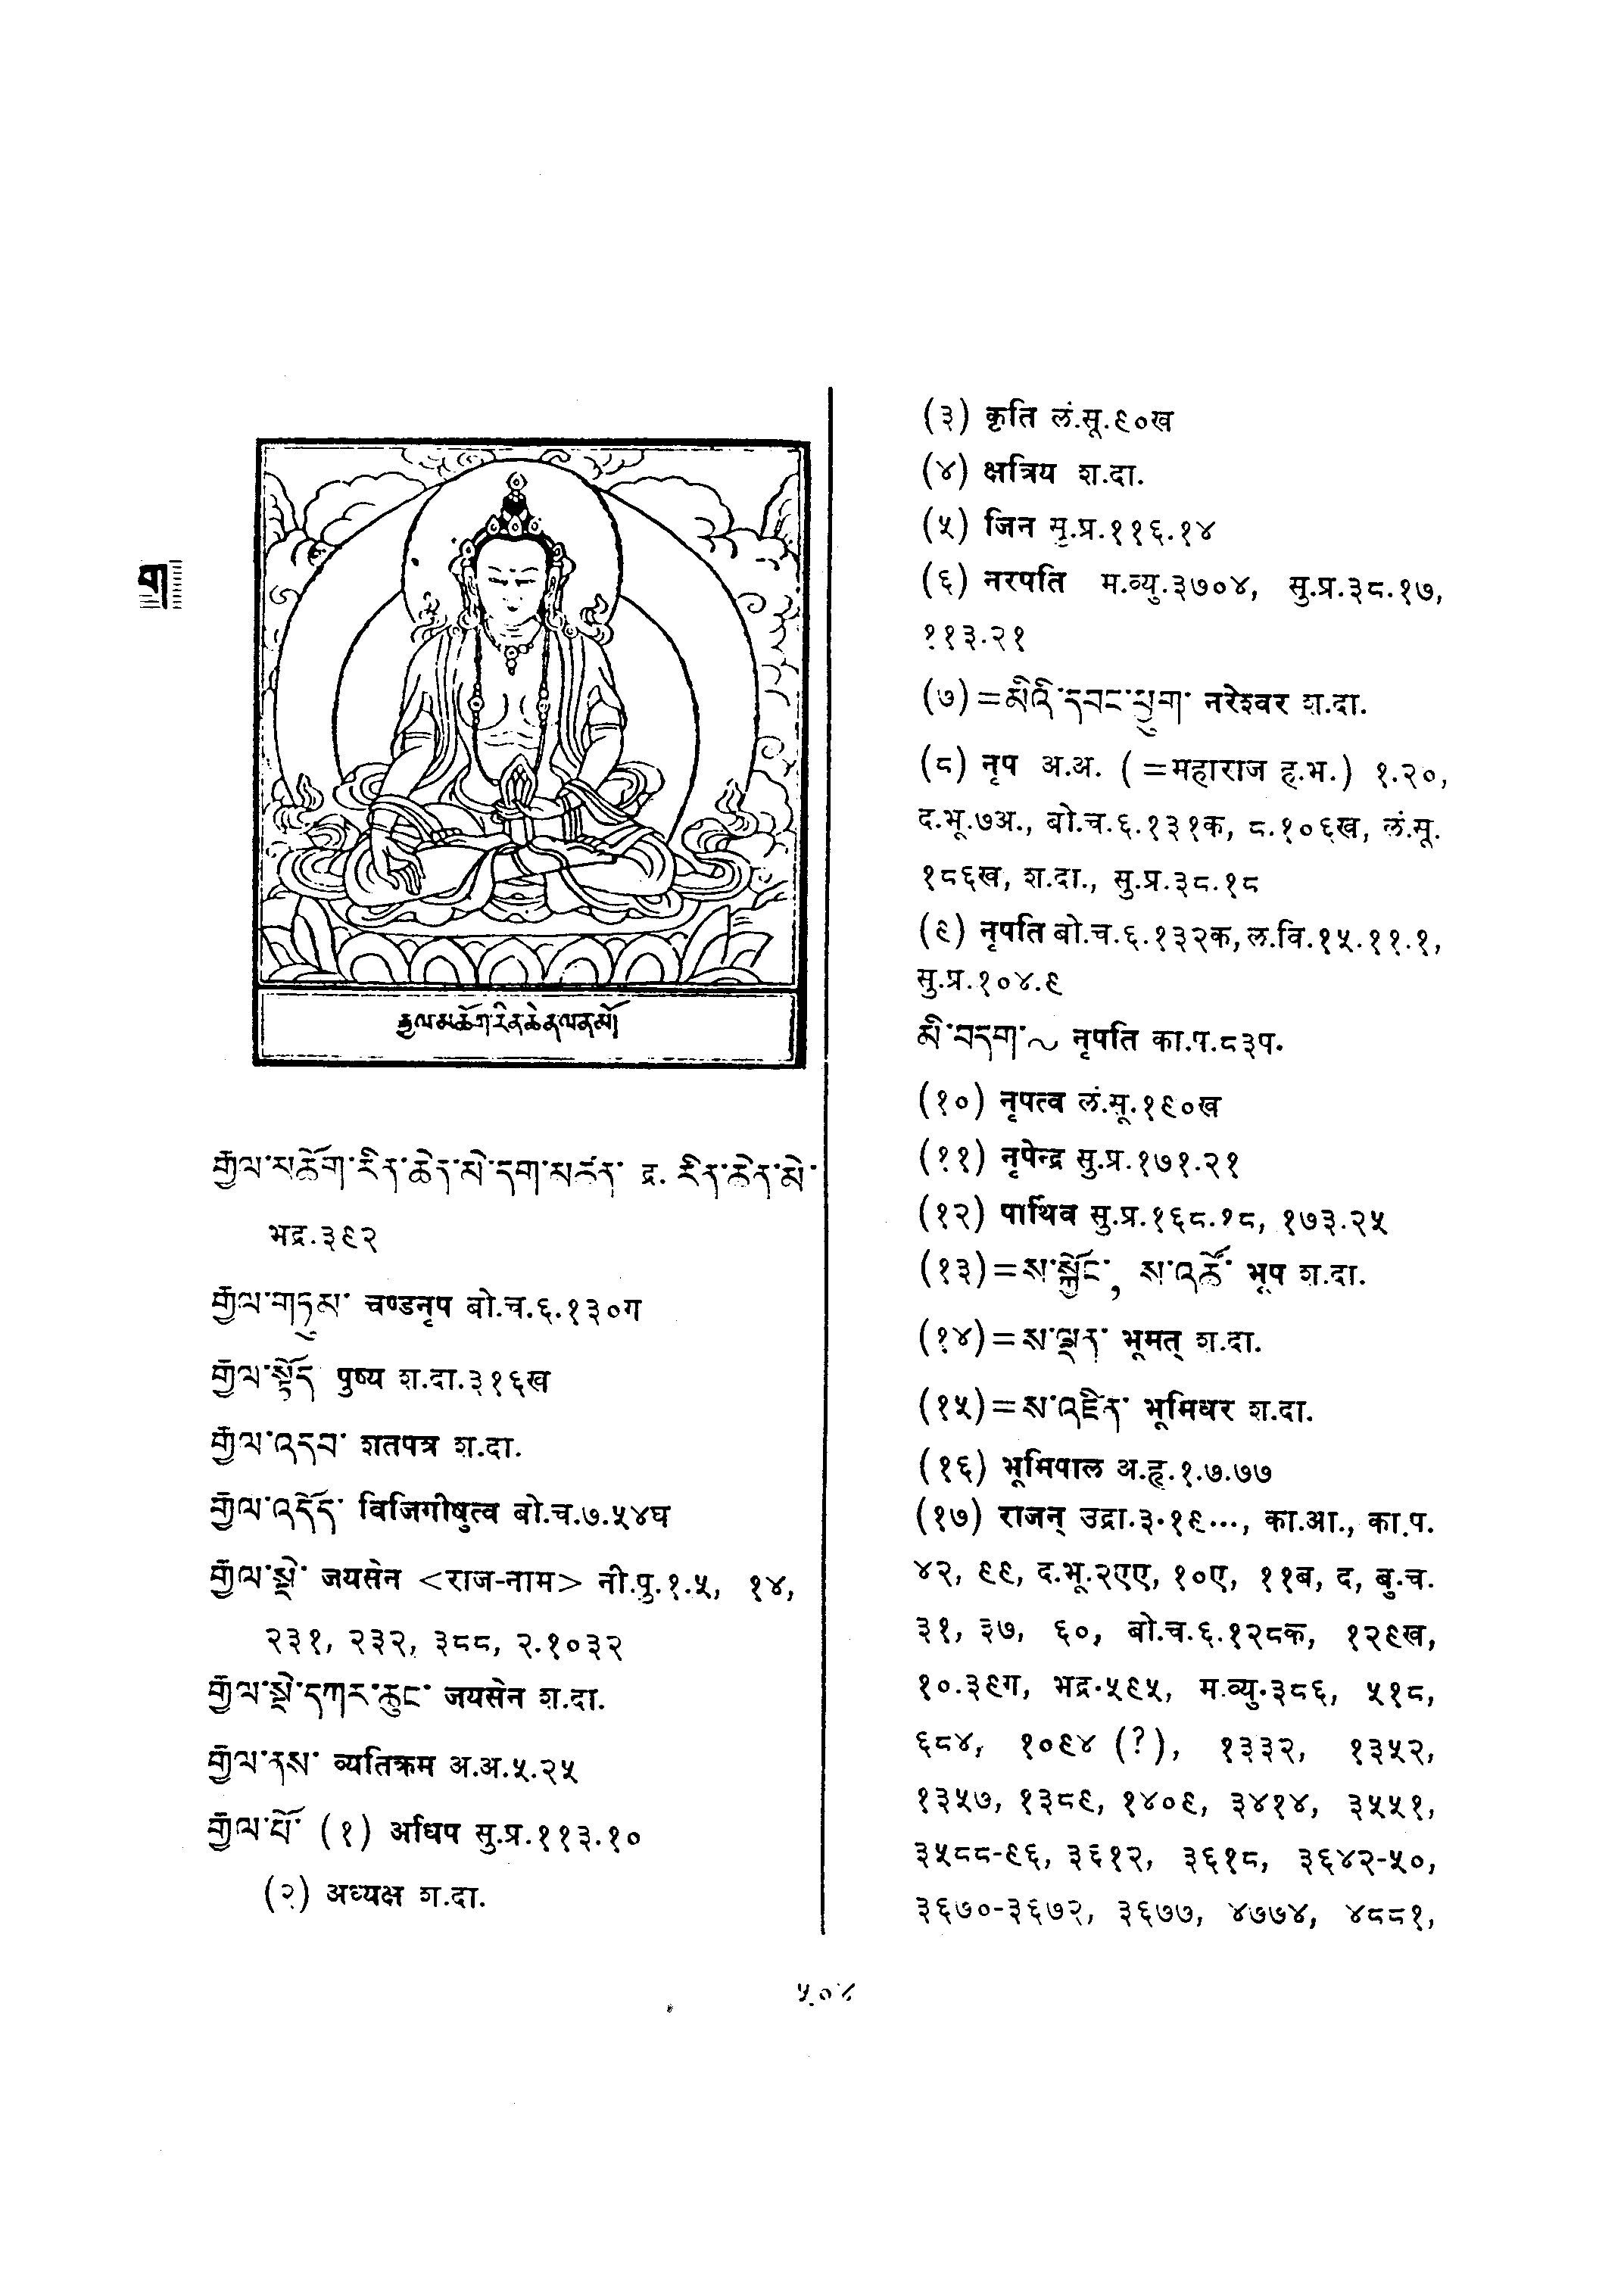 ག
རྒྱལ་མཆོག་རིན་ཆེན་ལ་ན་མོ།
རྒྱལ་མཆོག་རིན་ཆེན་མེ་དག་མཛན་ द्र. རིན་ཆེན་མེ་
भद्र.३९२
རྒྱལ་གཏུམ་ चण्डनृप बो.च.६.१३०ग
རྒྱལ་སྟོད पुष्य श.दा.३१६ख
རྒྱལ་འདབ་ शतपत्र श.दा.
རྒྱལ་འདོད་ विजिगीषुत्व बो.च.७.५४घ
རྒྱལ་སྡེ་ जयसेन <राज-नाम> नी.पु.१.५, १४,
२३१, २३२, ३८८, २.१०३२
རྒྱལ་སྡེ་དཀར་ཆུང་ जयसेन श.दा.
རྒྱལ་ནས་ व्यतिक्रम अ.अ.५.२५
རྒྱལ་པོ་ (१) अधिप सु.प्र.११३.१०
(२) अध्यक्ष श.दा.
(३) कृति लं.सू.९०ख
(४) क्षत्रिय श.दा.
(५) जिन सु.प्र.११६.१४
(६) नरपति म.व्यु.३७०४, सु.प्र.३८.१७,
११३.२१
(७)=མིའི་དབང་ཕྱུག་ नरेश्वर श.दा.
(८) नृप अ.अ. (=महाराज हृ.भ.) १.२०,
द.भू.७अ., बो.च.६.१३१क, ८.१०६ख, लं.सू.
१८६ख, श.दा., सु.प्र.३८.१८
(९) नृपति बो.च.६.१३२क, ल.वि.१५.११.१,
सु.प्र.१०४.९
མི་བདག་~ नृपति का.प.८३प.
(१०) नृपत्व लं.सू.१९०ख
(११) नृपेन्द्र सु.प्र.१७१.२१
(१२) पार्थिव सु.प्र.१६८.१८, १७३.२५
(१३)=ས་སྐྱོང་, ས་འཚོ་ भूप श.दा.
(१४)=ས་ལྡན་ भूमत् श.दा.
(१५)=ས་འཛིན་ भूमिधर श.दा.
(१६) भूमिपाल अ.हृ.१.७.७७
(१७) राजन् उद्रा.३.१९..., का.आ., का.प.
४२, ९९, द.भू.२एए, १०ए, ११ब, द, बु.च.
३१, ३७, ६०, बो.च.६.१२८क, १२९ख,
१०.३९ग, भद्र.५९५, म.व्यु.३८६, ५१८,
६८४, १०९४ (?), १३३२, १३५२,
१३५७, १३८९, १४०९, ३४१४, ३५५१,
३५८८-९६, ३६१२, ३६१८, ३६४२-५०,
३६७०-३६७२, ३६७७, ४७७४, ४८८१,
५०४